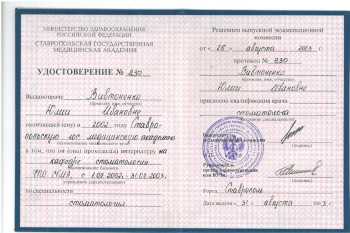 МИНИСТЕРСТВО ЗДРАВООХРАНЕНИЯ
РОССИЙСКОЙ ФЕДЕРАЦИИ
СТАВРОПОЛЬСКАЯ ГОСУДАРСТВЕННАЯ
МЕДИЦИНСКАЯ АКАДЕМИЯ
УДОСТОВЕРЕНИЕ № 230
Выдано врачу Вивтоненко
Юлии Ивановне
окончившей в 2002 году Ставро-
польскую гос. медицинскую академию
в том, что он (она) проходил(а) интернатуру на
кафедре стоматологии
с 1.09.2002 - 31.08.2003.
по специальности
стоматология
Решением выпускной экзаменационной
комиссии
от « 28 » августа 2003 г.
протокол № 230
Вивтоненко
Юлии Ивановне
присвоена квалификация врача
стоматолога
Город Ставрополь
Дата выдачи « 31 » августа 2003 г.